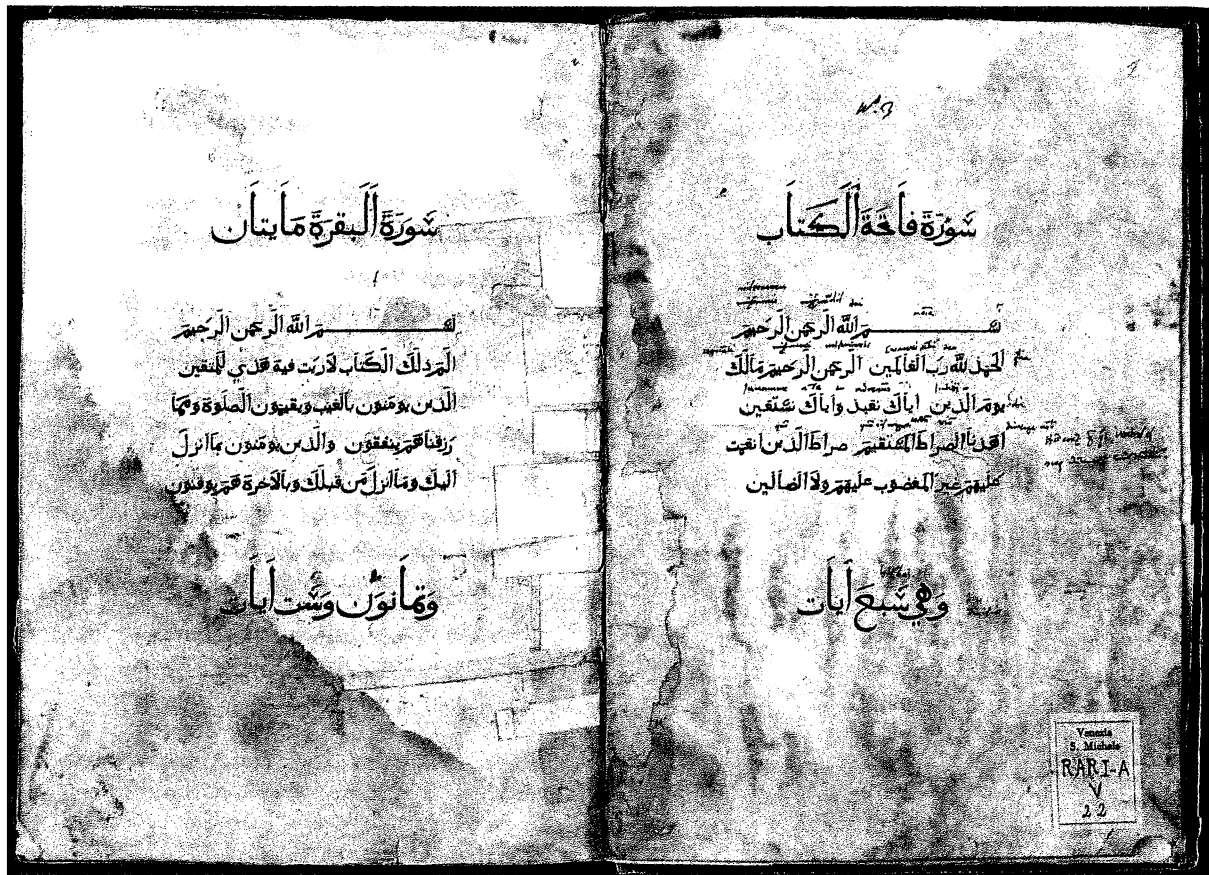 سورة فاتحة الكتاب
بسم الله الرحمن الرحيم
الحمد لله رب العالمين الرحمن الرحيم مالك
يوم الدين اياك نعبد واياك نستعين
اهدنا الصراط المستقيم صراط الذين انعمت
عليهم غير المغضوب عليهم ولا الضالين
وهي سبع ايات
Venezia
S. Michele
RARI-A
V
22
سورة البقرة مايتان
بسم الله الرحمن الرحيم
الم ذلك الكتاب لا ريب فيه هدي للمتقين
الذين يومنون بالغيب ويقيمون الصلوة ومما
رزقناهم ينفقون والذين يومنون بما انزل
اليك وما انزل من قبلك وبالاخرة هم يوقنون
وثمانون وست ايات